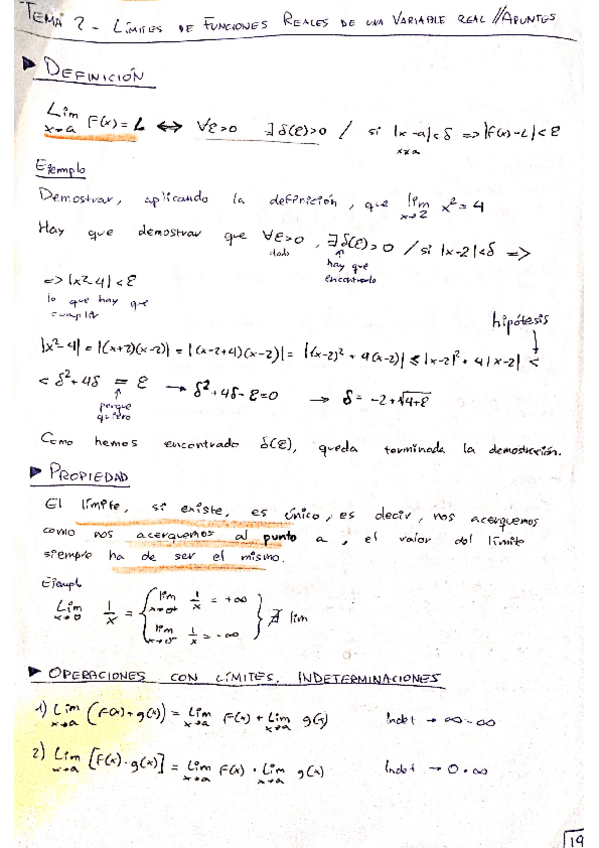 TEMA 2 - LÍMITES DE FUNCIONES REALES DE UNA VARIABLE REAL // APUNTES
► DEFINICIÓN
Lim x→a F(x) = L ⟺ ∀ε>0 ∃ δ(ε)>0 / si |x-a|<δ => |F(x)-L|<ε
x≠a
Ejemplo
Demostrar, aplicando la definición, que lim x→2 x² = 4
Hay que demostrar que ∀ε>0, ∃ δ(ε)>0 / si |x-2|<δ =>
dado
hay que
encontrarlo
=> |x²-4|<ε
lo que hay que
cumplir
hipótesis
|x²-4| = |(x+2)(x-2)| = |(x-2+4)(x-2)| = |(x-2)² + 4(x-2)| ≤ |x-2|² + 4|x-2| <
< δ²+4δ = ε → δ²+4δ-ε=0 → δ = -2+√4+ε
porque
quiero
Como hemos encontrado δ(ε), queda terminada la demostración.
► PROPIEDAD
El límite, si existe, es único, es decir, nos acerquemos
como nos acerquemos al punto a, el valor del límite
siempre ha de ser el mismo.
Ejempl
Lim x→0 1/x = { lim x→0⁺ 1/x = +∞
lim x→0⁻ 1/x = -∞ } ∄ lim
► OPERACIONES CON LÍMITES. INDETERMINACIONES
1) Lim x→a (F(x)+g(x)) = Lim x→a F(x) + Lim x→a g(x) Indet → ∞-∞
2) Lim x→a [F(x)·g(x)] = Lim x→a F(x) · Lim x→a g(x) Indet → 0·∞
19